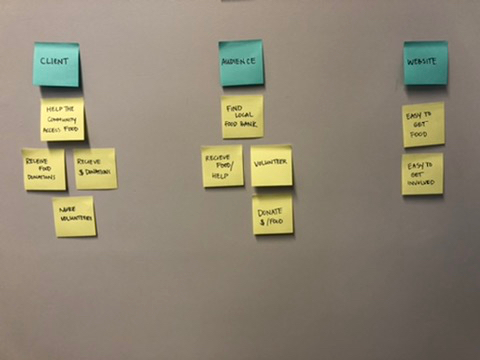 CLIENT
HELP THE
COMMUNITY
ACCESS FOOD
RECIEVE
FOOD
DONATIONS
RECIEVE
$ DONATIONS
VOLUNTEERS
AUDIENCE
FIND
LOCAL
FOOD BANK
RECIEVE
FOOD/
HELP
VOLUNTEER
DONATE
$/FOOD
WEBSITE
EASY TO
GET
FOOD
EASY TO
GET
INVOLVED